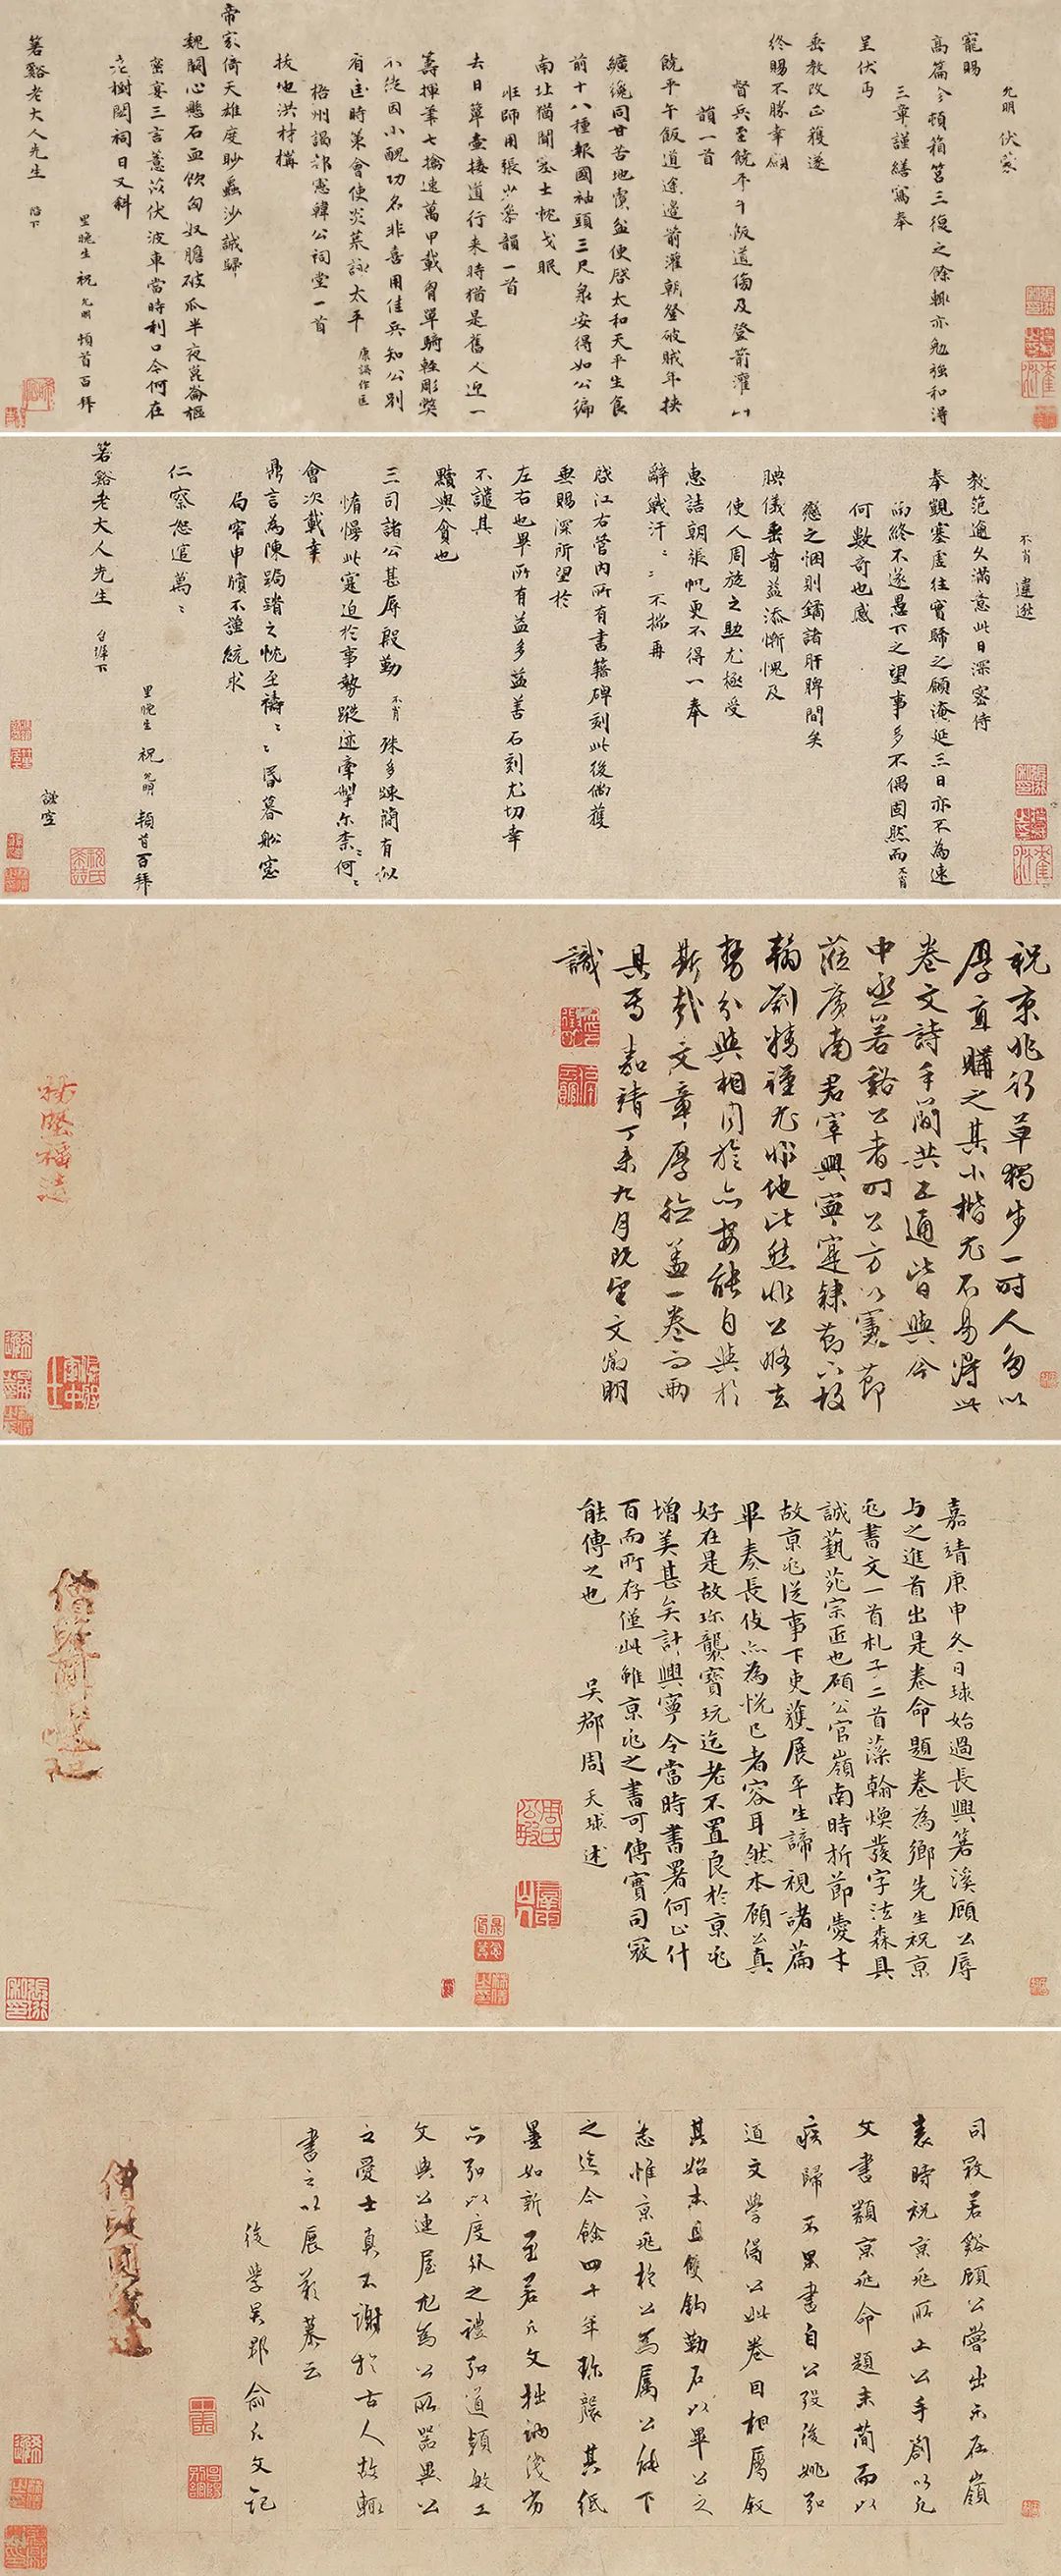 允明 伏蒙
寵賜
高篇今頓箱笥三復之餘輒亦勉強和得
三章謹繕寫奉
呈伏丐
垂教改正獲遂
終賜不勝幸願
督兵至饒平午飯道傷及登箭灌八
韻一首
饒平午飯道途邊箭灌朝登破賊年挾
纊纔同甘苦地賣盆便啓太和天平生食
前十八種報國袖頭三尺泉安得如公編
南址猶聞塞士枕戈眠
班師用張少參韻一首
去日簞壺接道行来時猶是舊人迎一
籌揮筆七擒速萬甲載胷單騎輕彫獎
不從因小醜功名非喜用佳兵知公別
有匡時策會使炎荒詠太平
梧州謁都憲韓公祠堂一首
拔地洪材構
帝家倚天雄度眇蟲沙誠歸
魏闕心懸石血飲匈奴膽破瓜半夜崑崙樞
蜜宴三言薏苡伏波車當時利口今何在
花樹閟祠日又斜
里晚生 祝 允明 頓首百拜
箬谿老大人先生 階下
不肖 違逖
教范逾久滿意此日深密侍
奉觀塞虛往實歸之願淹延三日亦不為速
而終不遂愚下之望事多不偶固然而不肖
何數奇也感
戀之悃則鏤諸肝脾間矣
腆儀垂賁益添慚愧及
使人周旋之勤尤極受
惠詰朝張帆更不得一奉
辭戰汗〻〻不揣再
啓江右管內所有書籍碑刻此後倘獲
垂賜深所望於
左右也畢所有益多益善石刻尤切幸
不譴其
黷與貪也
三司諸公甚辱殷勤不肖殊多踈簡有似
惰慢此寔迫於事勢蹤迹牽掣尓柰〻何〻
會次載幸
鼎言為陳跼蹐之忱至禱〻〻昏暮舩窓
局窄申牘不謹統求
仁察恕逭萬〻
里晚生 祝 允明 頓首百拜
箬谿老大人先生 台墀下
謹空
祝京兆行草獨步一時人多以
厚直購之其小楷尤不易得此
卷文詩手簡共五通皆與今
中丞箬谿公者時公方以憲節
蒞廣南君宰興寧寔隸節下故
翰劄精謹尤非他比然非公略去
勢分與相周旋亦安能自與於
斯哉文章厚祉蓋一卷而兩
具焉嘉靖丁未九月既望文徵明
識
嘉靖庚申冬日球始過長興箬溪顧公辱
与之進首出是卷命題卷為鄉先生祝京
兆書文一首札子二首藻翰煥發字法森具
誠藝苑宗匠也碩公官嶺南時折節愛才
故京兆從事下吏獲展平生諦視諸篇
畢奏長伎亦為悅己者容耳然本顧公真
好在是故珎襲寶玩迄老不置良於京兆
增美甚矣計興寧令當時書署何止什
百而所存僅此雖京兆之書可傳實司寇
能傳之也
吳郡周天球述
司寇箬谿顧公嘗出示在嶺
表時祝京兆所上公手劄以允
文書類京兆命題末簡而以
疾歸不果書自公歿後姚弘
道文學得公此卷因相屬叙
其始末且雙鉤勒石以畢公之
志惟京兆於公為屬公能下
之迄今餘四十年珎襲其紙
墨如新至若允文拙訥淺劣
公弘以度外之禮弘道穎敏工
文與公連屋尤為公所器異公
之愛士真不謝於古人故輒
書之以展哀慕云
後學吳郡俞允文記